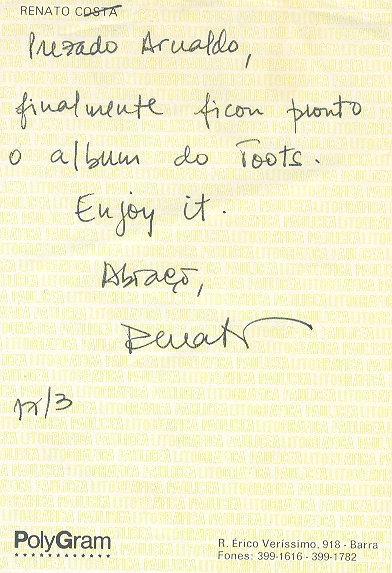 RENATO COSTA
Prezado Arnaldo,
finalmente ficou pronto
o album do Toots.
Enjoy it.
Abraço,
Renato
PolyGram
R. Érico Veríssimo, 918 - Barra
Fones: 399-1616 - 399-1782